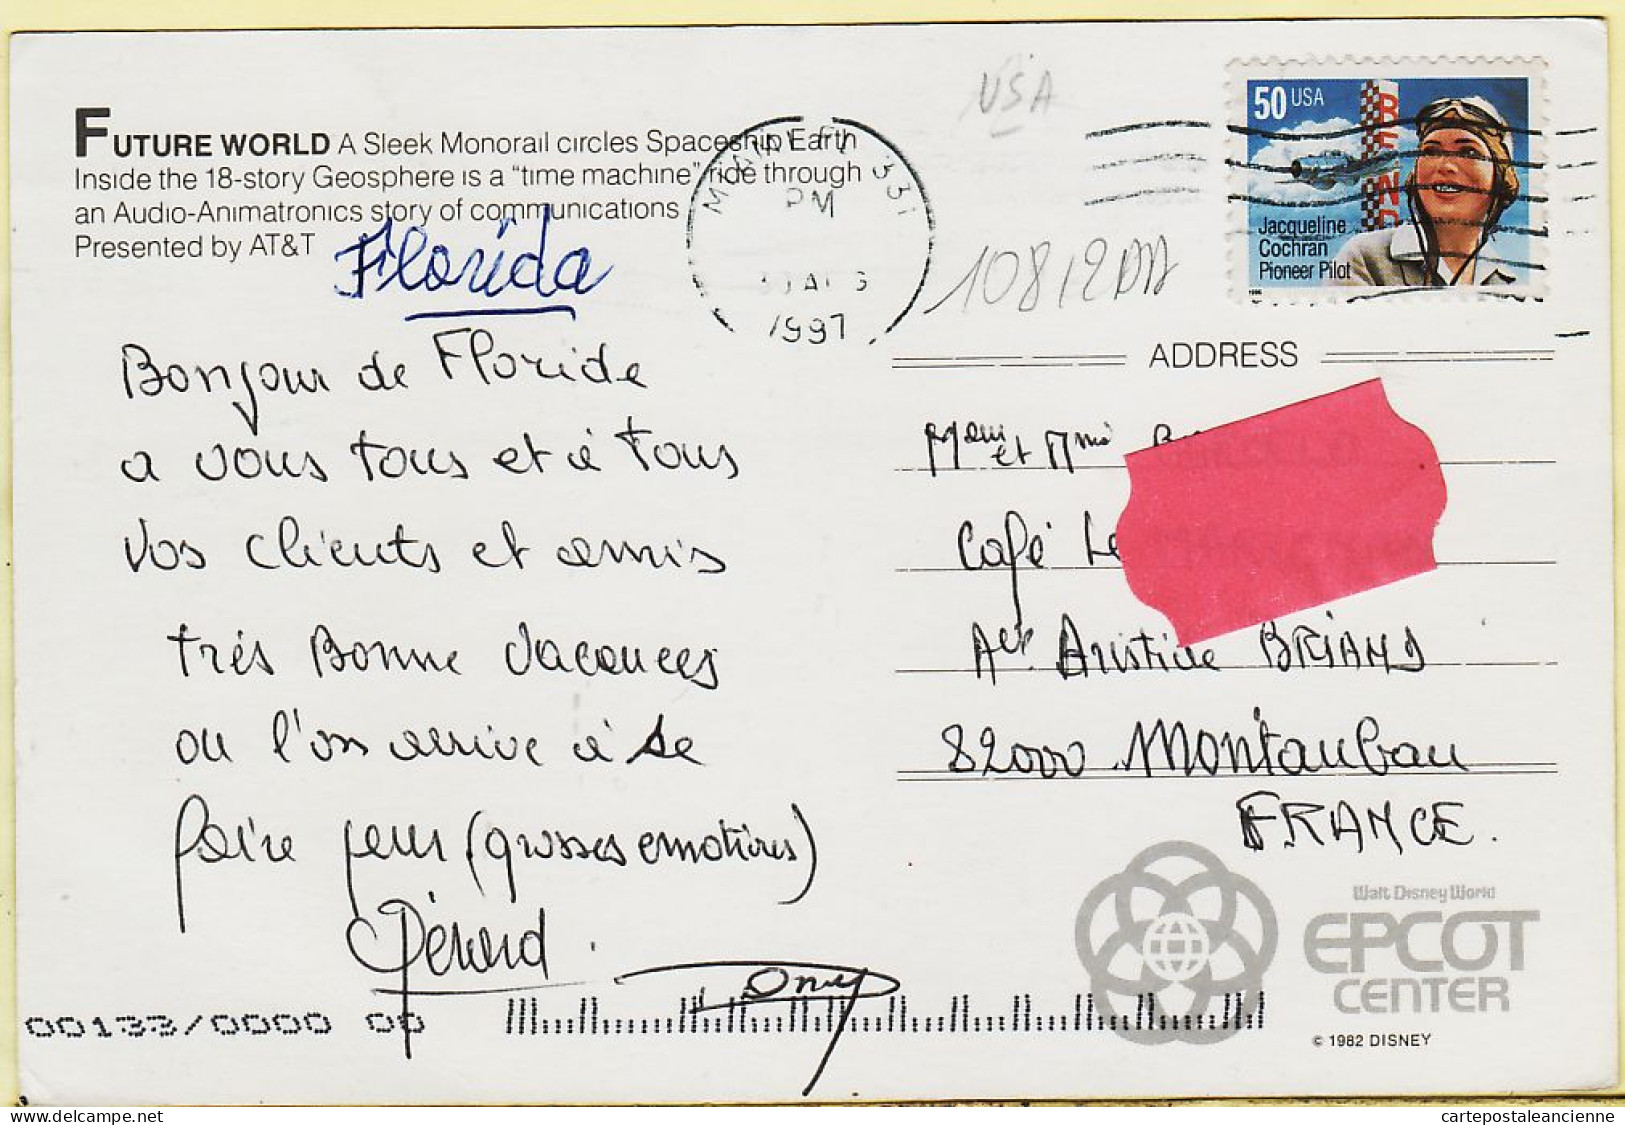 FUTURE WORLD A Sleek Monorail circles Spaceship Earth
Inside the 18-story Geosphere is a "time machine" ride through
an Audio-Animatronics story of communications
Presented by AT&T
Florida
USA
PM
1997
331
50 USA
BEND
Jacqueline
Cochran
Pioneer Pilot
1996
ADDRESS
Bonjour de Floride
a vous tous et à tous
vos clients et amis
très Bonne Vacances
ou l'on arrive à se
faire peur (grosses emotions)
Gérard.
et Mme
Café Le
Aristide BRIAND
82000 Montauban
FRANCE.
Walt Disney World
EPCOT
CENTER
© 1982 DISNEY
00133/0000 op
delcampe.net
cartepostaleancienne